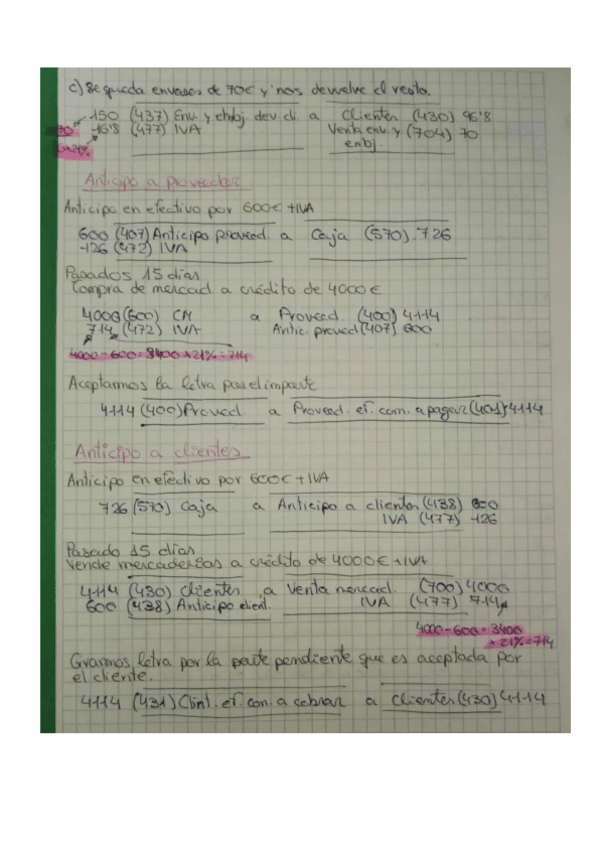 c) Se queda envases de 70€ y nos devuelve el resto.
150 (437) Env. y emb. dev. cl. a Clientes (430) 96'8
70 16'8 (477) IVA Venta env. y (704) 70
21% emb.
Anticipo a proveedor
Anticipo en efectivo por 600€ + IVA
600 (407) Anticipo proveed. a Caja (570) 726
126 (472) IVA
Pasados 15 días
Compra de mercad. a crédito de 4000€
4000 (600) CM a Proveed. (400) 4114
714 (472) IVA Antic. proveed (407) 600
4000 - 600 = 3400 x 21% = 714
Aceptamos la letra por el importe
4114 (400) Proveed a Proveed. ef. com. a pagar (401) 4114
Anticipo a clientes
Anticipo en efectivo por 600€ + IVA
726 (570) Caja a Anticipo a clientes (438) 600
IVA (477) 126
Pasado 15 días
Vende mercaderías a crédito de 4000€ + IVA
4114 (430) Clientes a Venta mercad. (700) 4000
600 (438) Anticipo client. IVA (477) 714
4000 - 600 = 3400
x 21% = 714
Giramos letra por la parte pendiente que es aceptada por
el cliente.
4114 (431) Clint. ef. con. a cobrar a Clientes (430) 4114